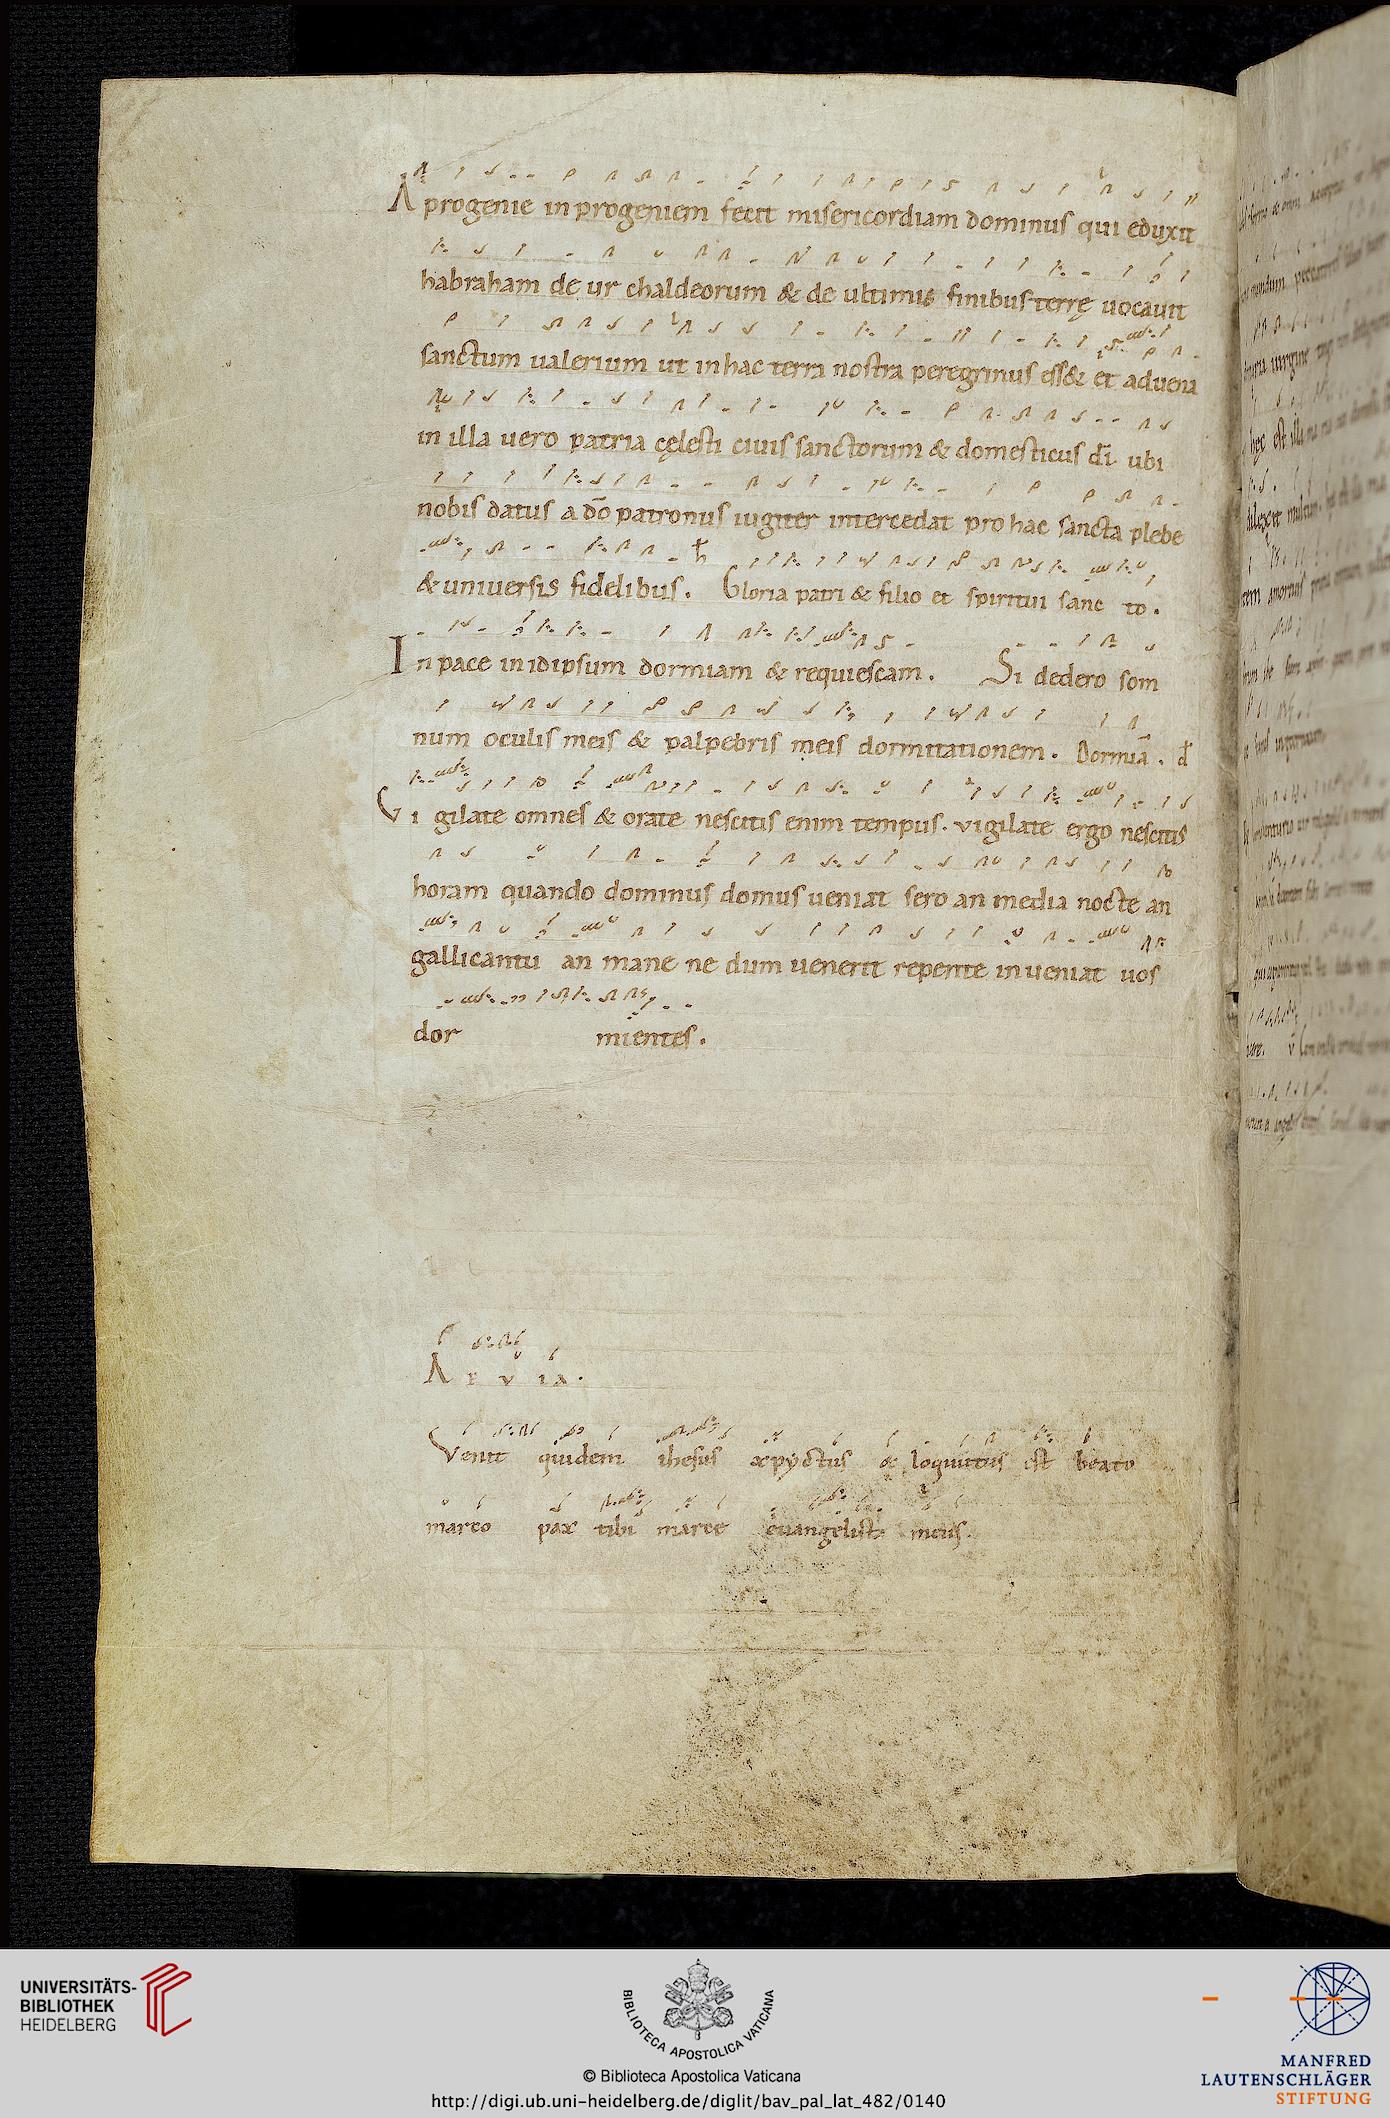 A progenie in progeniem fecit misericordiam dominus qui eduxit
habraham de ur chaldeorum & de ultimis finibus terrę uocauit
sanctum ualerium ut in hac terra nostra peregrinus ess& et aduena
in illa uero patria cęlesti ciuis sanctorum & domesticus dī ubi
nobis datus a dō patronus iugiter intercedat pro hac sancta plebe
& uniuersis fidelibus. Gloria patri & filio et spiritui sanc to.
In pace in idipsum dormiam & requiescam. Si dedero som
num oculis meis & palpebris meis dormitationem. Dormiā.
Vi gilate omnes & orate nescitis enim tempus. vigilate ergo nescitis
horam quando dominus domus ueniat sero an media nocte an
gallicantu an mane ne dum uenerit repente inueniat uos
dor mientes.
A e v ia.
Venit quidem ihesus & loquutus est beato
marco pax tibi marce meus.
UNIVERSITÄTS-
BIBLIOTHEK
HEIDELBERG
BIBLIOTECA APOSTOLICA VATICANA
© Biblioteca Apostolica Vaticana
http://digi.ub.uni-heidelberg.de/diglit/bav_pal_lat_482/0140
MANFRED
LAUTENSCHLÄGER
STIFTUNG